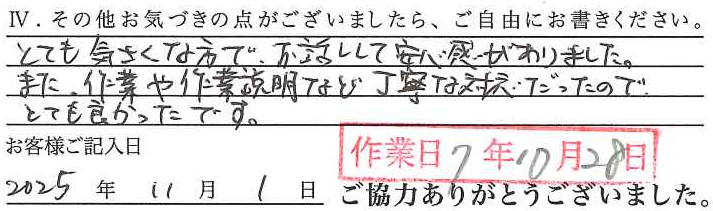 Ⅳ．その他お気づきの点がございましたら、ご自由にお書きください。
とても気さくな方で、お話しして安心感がありました。
また、作業や作業説明など丁寧な対応だったので
とても良かったです。
お客様ご記入日
作業日 7年10月28日
2025 年 11 月 1 日 ご協力ありがとうございました。